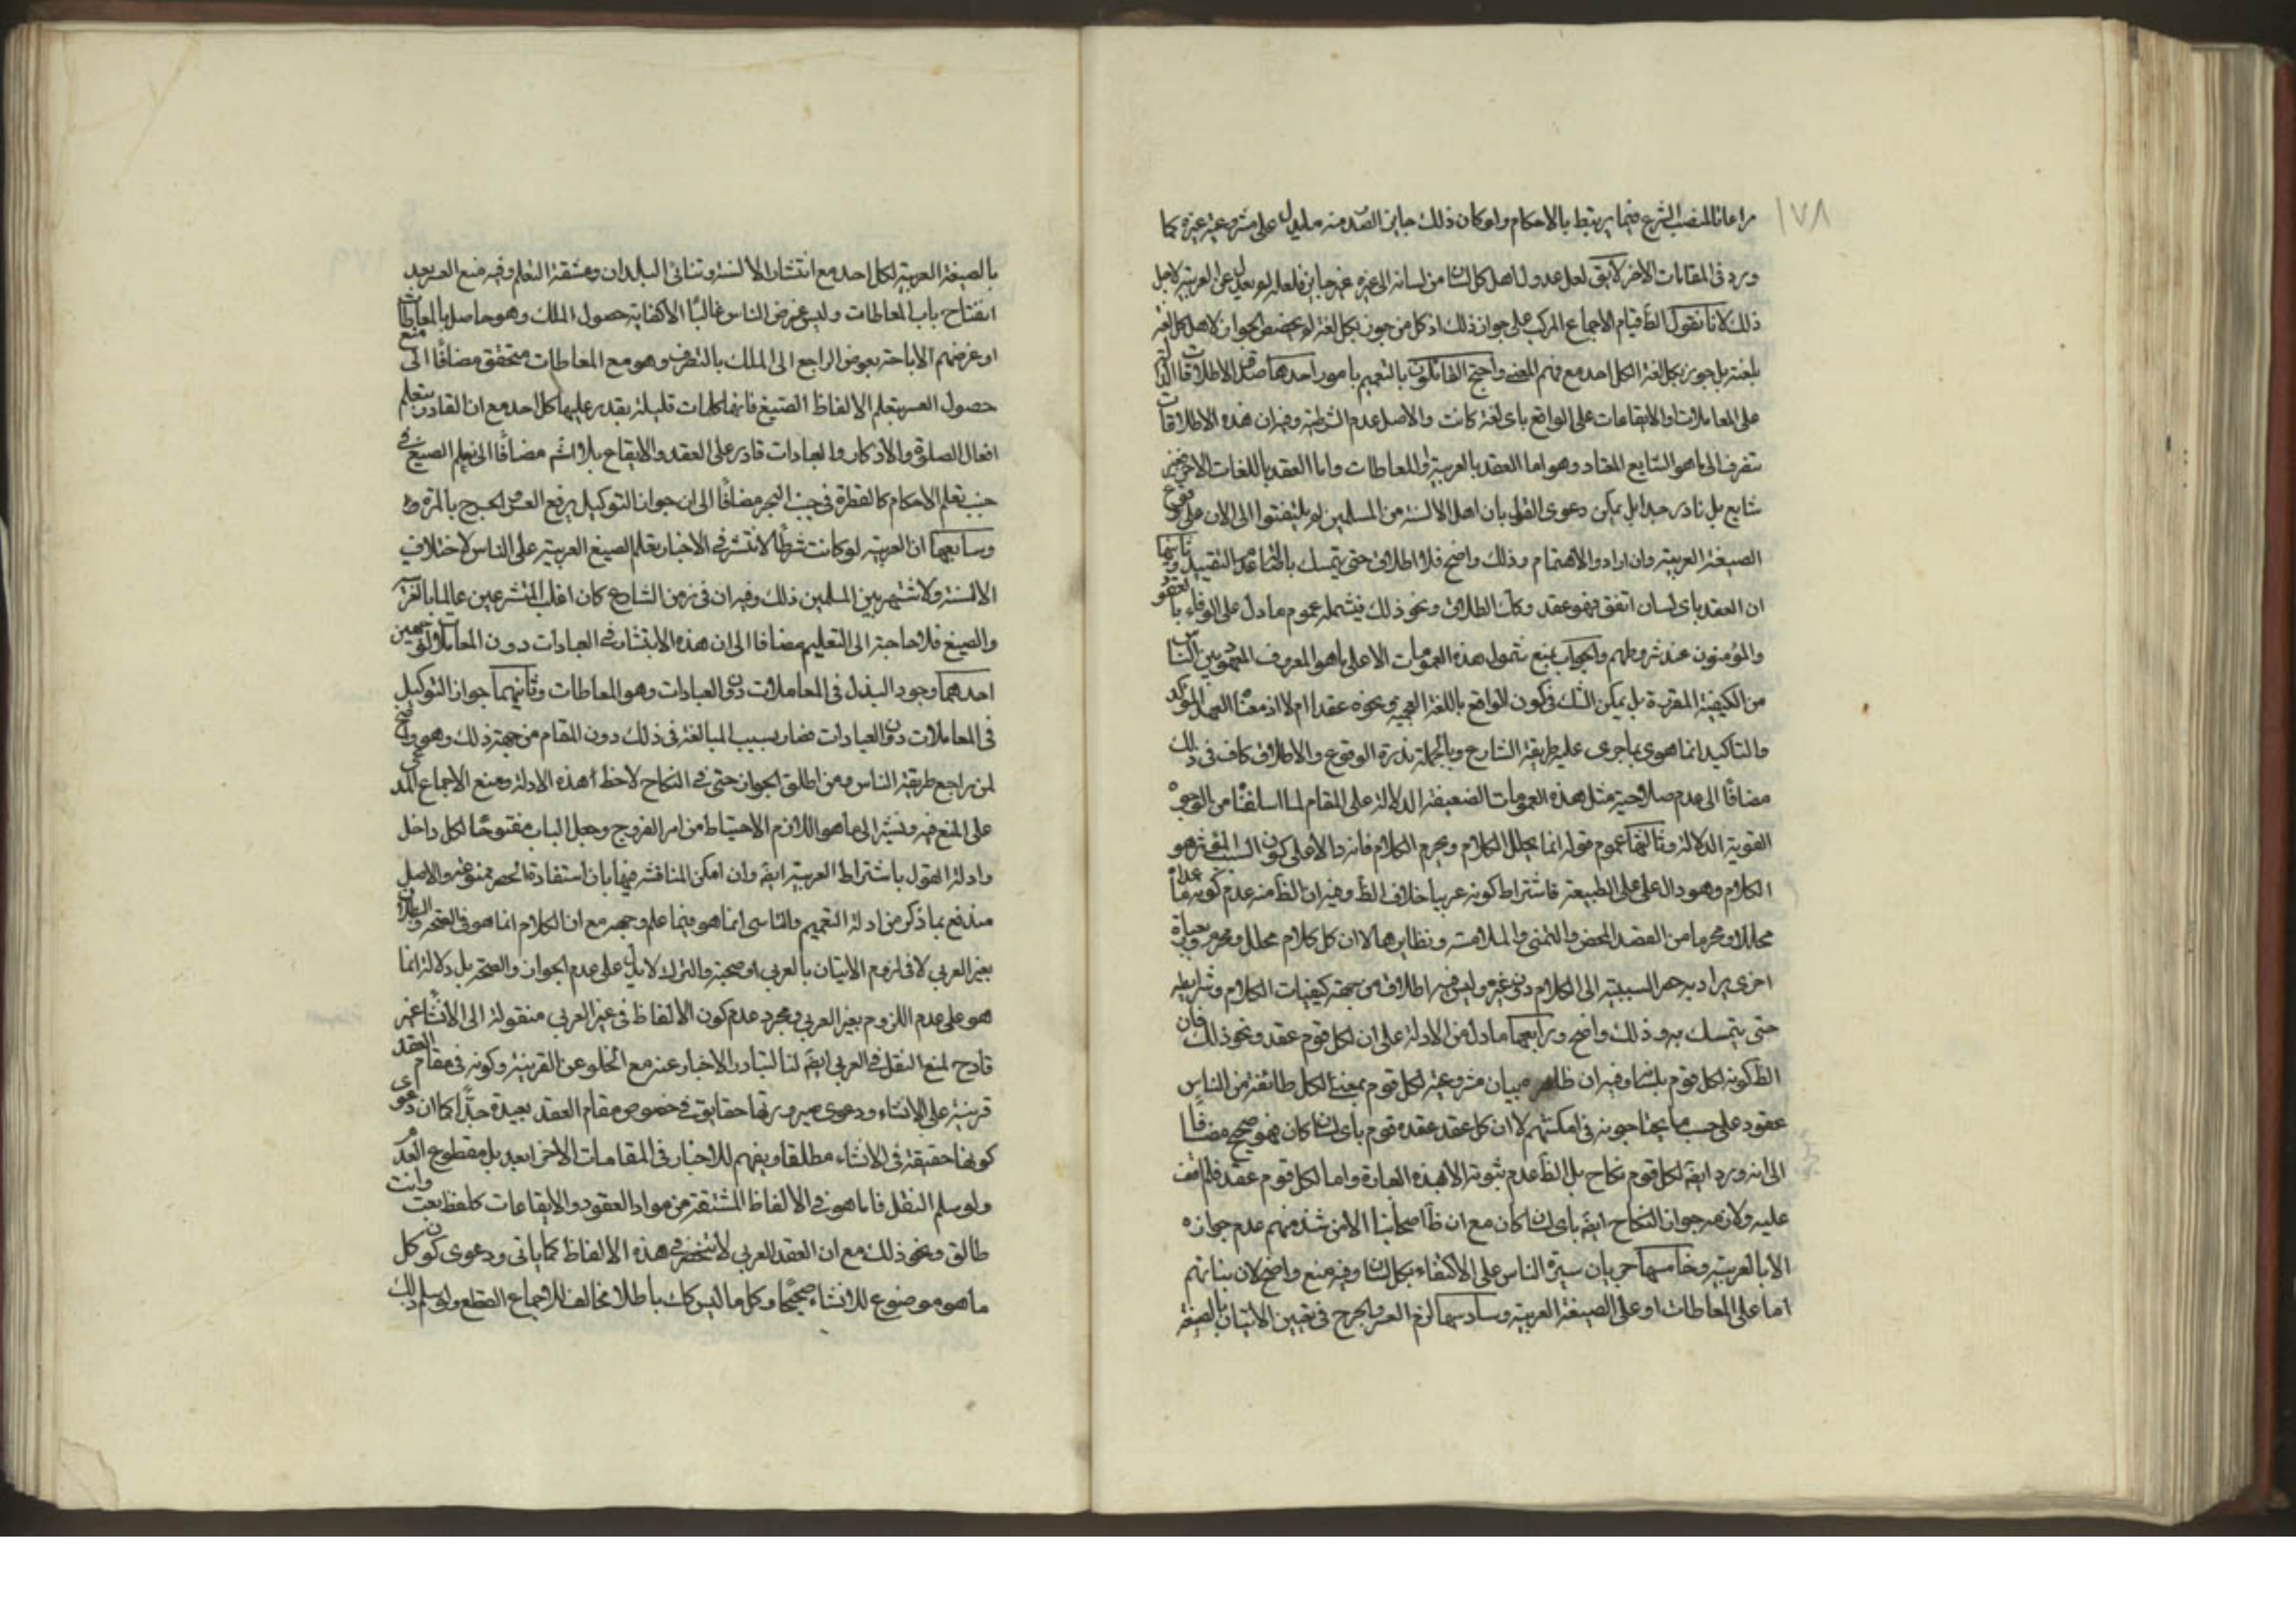 ١٧٨
مراعاتا لمنصب الشرع فيما يرتبط بالاحكام ولو كان ذلك جايز الصدور منه ما يدل على مشروعية غيره كما
ورد في المقامات الاخر لا يق لعل عدول اهل كل لسان من لسانه الى غيره غير جايز فلعله لم يعدل عن العربية لاجل
ذلك لانا نقول الظ قيام الاجماع المركب على جواز ذلك اذ كل من جوز بكل لغة لم يخصص الجواز لاهل كل لغة
بلغته بل جوز بكل لغة لكل احد مع فهم المعنى واحتج القائلون بالتعميم بامور احدها صدق الاطلاقات الدالة
على المعاملات والايقاعات على الواقع باى لغة كانت والاصل عدم الشرطية وفيه ان هذه الاطلاقات
تنصرف الى ما هو الشايع المعتاد وهو اما العقد بالعربية او المعاطات واما العقد باللغات الاخر فغير
شايع بل نادر جدا بل يمكن دعوى القول بان اهل الالسنة من المسلمين لم يلتفتوا الى الان على وقوع
الصيغة العربية وان ارادوا الاهتمام وذلك واضح فلا اطلاق حتى يتمسك باصالة عدم التقييد وثانيها
ان العقد باى لسان اتفق فهو عقد وكك الطلاق ونحو ذلك فيشمله عموم ما دل على الوفاء بالعقود
والمؤمنون عند شروطهم والجواب بمنع شمول هذه العمومات الا على ما هو المعروف المعهود بين الناس
من الكيفية المقررة بل يمكن الشك في كون الواقع باللغة العجمية ونحوه عقدا ام لا اذ معناه العهد المؤكد
والتاكيد انما هو بما جرى عليه طريقة الشارع وبالجملة ندرة الوقوع والاطلاق كاف في ذلك
مضافا الى عدم صلاحية مثل هذه العمومات الضعيفة الدلالة على المقام لما اسلفنا من الوجوه
القوية الدلالة وثالثها عموم قوله انما يحلل الكلام ويحرم الكلام فانه دال على كون السبب المؤثر هو
الكلام وهو دال على الطبيعة فاشتراط كونه عربيا خلاف الظ وفيه ان الظ منه عدم كون ما عداه
محللا ومحرما من القصد المحض والتمنى والملامسة ونظايرها لا ان كل كلام محلل ومحرم وبعبارة
اخرى يراد به حصر السببية الى الكلام دون غيره وليس فيه اطلاق من جهة كيفيات الكلام وشرايطه
حتى يتمسك به وذلك واضح ورابعها ما دل من الادلة على ان لكل قوم عقد ونحو ذلك فان
الظ كونه لكل قوم بلسانه وفيه ان ظاهره بيان مشروعية لكل قوم بمعنى لكل طائفة من الناس
عقود على حسب ما يحتاجونه في امكنتهم لا ان كل عقد عقده قوم باى لسان كان فهو صحيح مضافا
الى انه ورد ايضا لكل قوم نكاح بل الظ عدم ثبوته الا بهذه العبارة واما لكل قوم عقد فلم اقف
عليه ولازمه جواز النكاح ايضا باى لسان كان مع ان ظ اصحابنا الا من شذ منهم عدم جوازه
الا بالعربية وخامسها جريان سيرة الناس على الاكتفاء بكل لسان وفيه منع واضح لان بنائهم
اما على المعاطات او على الصيغة العربية وسادسها لزم العسر والحرج في تعيين الاتيان بالصيغة
بالصيغة العربية لكل احد مع انتشار الالسنة وتنائى البلدان ومشقة التعلم وفيه منع العسر بعد
انفتاح باب المعاطات وليس غرض الناس غالبا الا كفاية حصول الملك وهو حاصل بالمعاطات
او غرضهم الاباحة بعوض الراجع الى الملك بالتصرف وهو مع المعاطات متحقق مضافا الى منع
حصول العسر بتعلم الالفاظ الصيغ فانها كلمات قليلة يقدر عليها كل احد مع ان القادر بتعلم
افعال الصلوة والاذكار والعبادات قادر على العقد والايقاع بلا اشم مضافا الى تعلم الصيغ في
جنب تعلم الاحكام كالقطرة في جنب البحر مضافا الى ان جواز التوكيل يرفع العسر والحرج بالمرة
وسابعها ان العربية لو كانت شرطا لانتشر في الاخبار تعلم الصيغ العربية على الناس لاختلاف
الالسنة ولاشتهر بين المسلمين ذلك وفيه ان في زمن الشارع كان اغلب المتشرعين عالما بالعربية
والصيغ فلا حاجة الى التعليم مضافا الى ان هذه الانتشار في العبادات دون المعاملات لوجهين
احدهما وجود البدل في المعاملات دون العبادات وهو المعاطات وثانيهما جواز التوكيل
في المعاملات دون العبادات فصار سبب المبالغة في ذلك دون المقام من جهة ذلك وهو واضح
لمن راجع طريقة الناس ومن اطلق الجواز حتى في النكاح لاحظ هذه الادلة ومنع الاجماع المدعى
على المنع فيه ونشير الى ما هو اللازم الاحتياط من امر الفروج وجعل الباب مفتوحا لكل داخل
وادلة القول باشتراط العربية ايضا وان امكن المناقشة فيها بان استفادة الحصر ممنوعة والاصل
مندفع بما ذكر من ادلة التعميم والتاسى انما هو فيما علم وجهه مع ان الكلام انما هو في الصحة والبطلان
بغير العربي لا في لزوم الاتيان بالعربي او صحته والترك لا يدل على عدم الجواز والصحة بل دلالة انما
هو على عدم اللزوم بغير العربي ومجرد عدم كون الالفاظ في غير العربي منقولة الى الانشاء غير
قادح لمنع النقل في العربي ايضا لنا لتبادر الاخبار عنه مع الخلو عن القرينة وكونه في مقام العقد
قرينة على الانشاء ودعوى صيرورتها حقايق في خصوص مقام العقد بعيدة جدا كما ان دعوى
كونها حقيقة في الانشاء مطلقا ويفهم للاخبار في المقامات الاخر ابعد بل مقطوع العدم
ولو سلم النقل فانما هو في الالفاظ المشتقة من مواد العقود والايقاعات كلفظ بعت وانت
طالق ونحو ذلك مع ان العقد العربي لا تنحصر في هذه الالفاظ كما ياتى ودعوى كون كل
ما هو موضوع للانشاء صحيحا وكل ما ليس كك باطلا مخالف للاجماع القطع ولو سلم ذلك